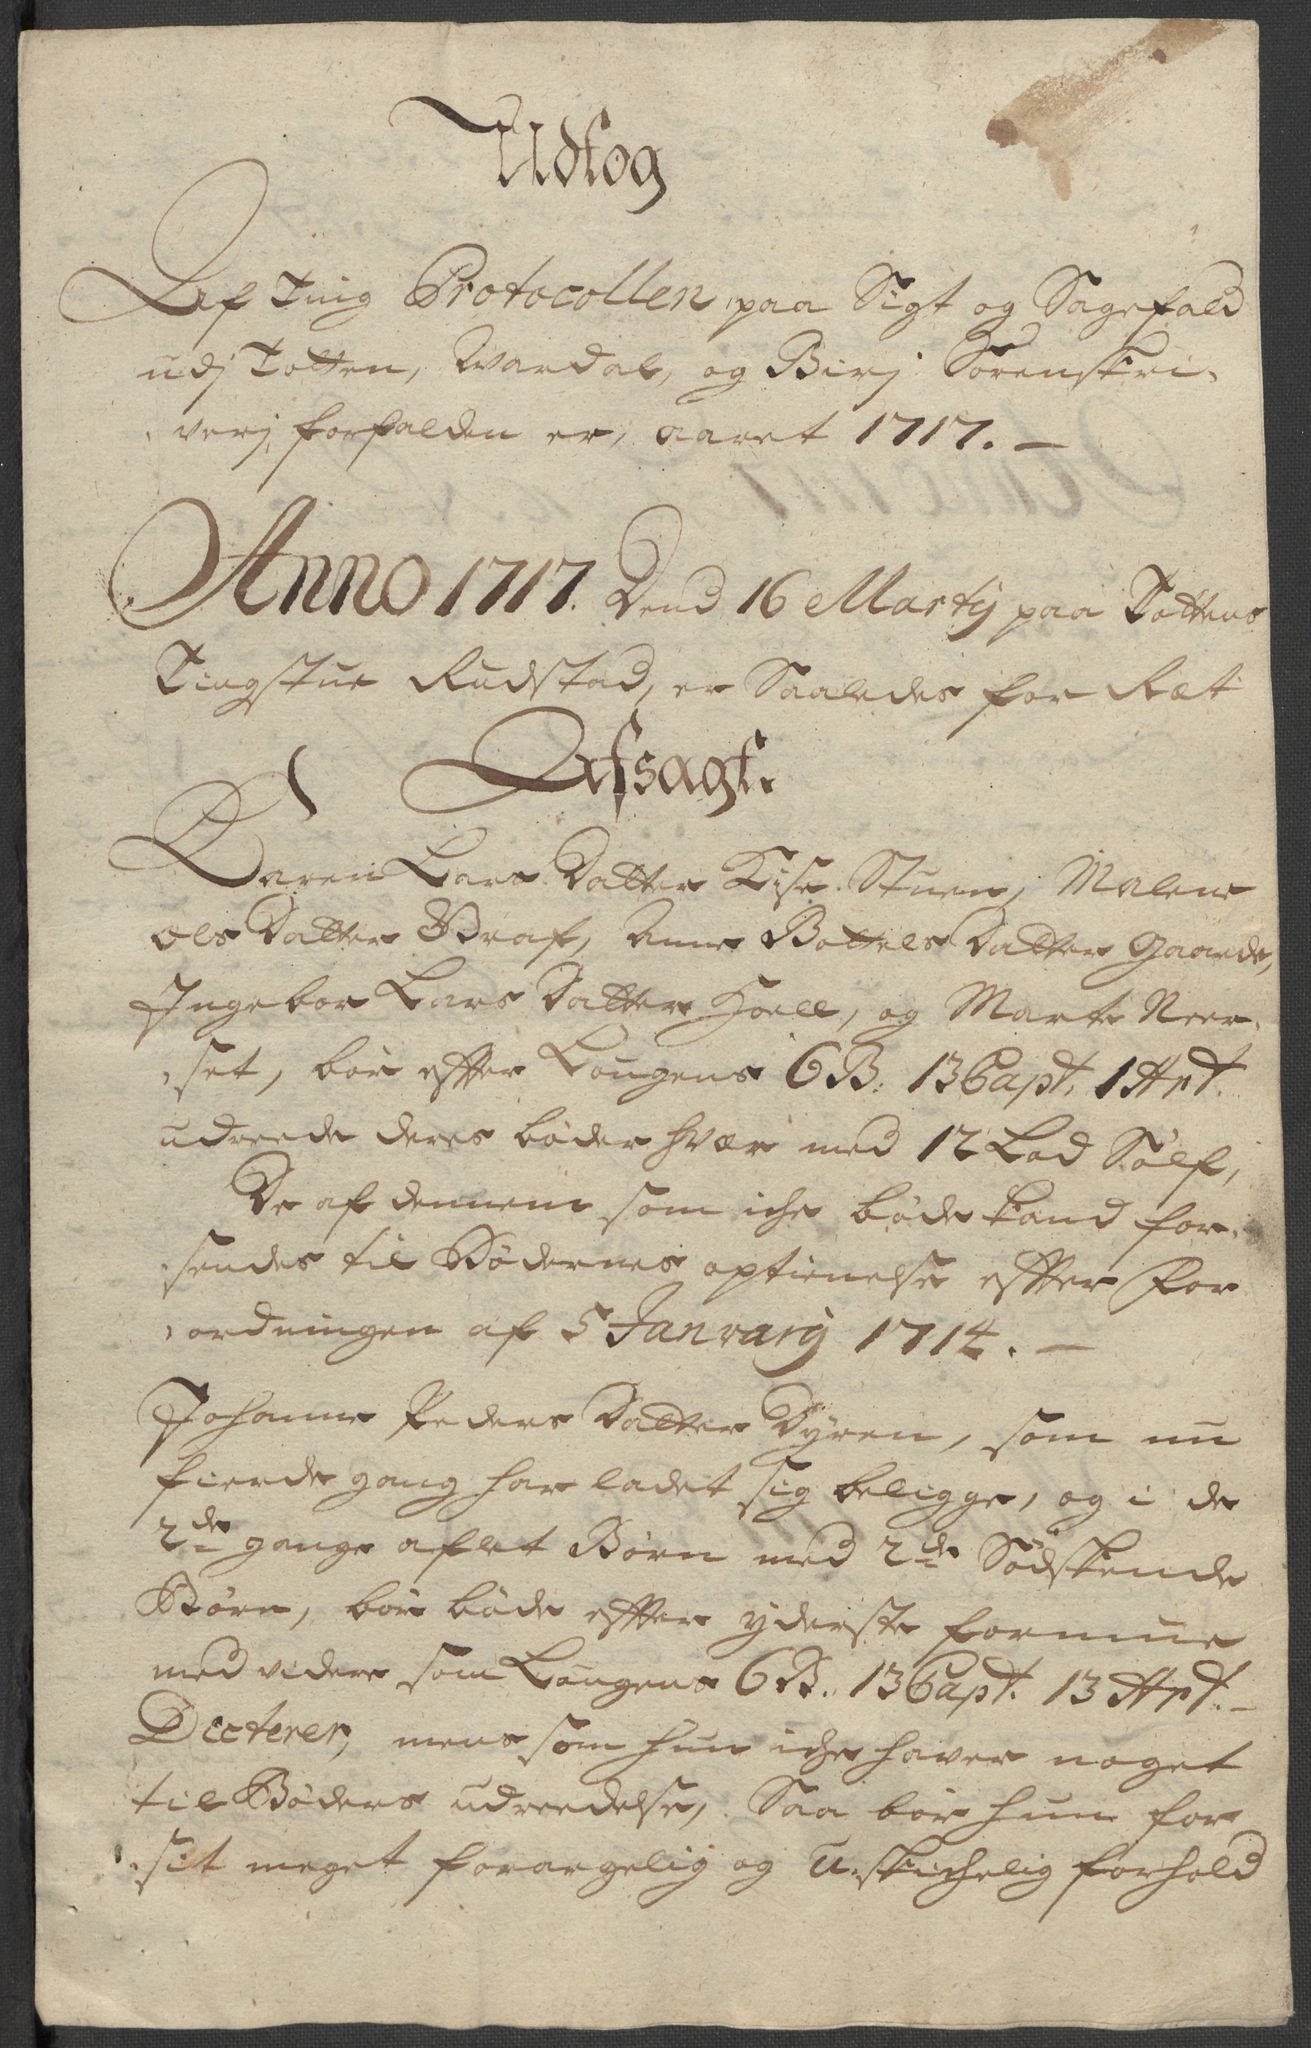 Udtog
Af Ting Protocollen paa Sigt og Sagefald
udj Totten, Wardal, og Birj Sorenskri-
verj forfalden er, aaret 1717. –
Anno 1717. Dend 16 Martij paa Tottens
Tingstue Rudstad, er Saaledes for Ræt
Afsagt.
Karen Lars Datter Kise Stuen, Malene
Ols Datter Braf, Anne Bottels Datter Gaarde,
Ingebor Lars Datter Hoell, og Marte Neer-
set, bør effter Lougens 6 B: 13 Capt. 1 Art.
udreede deres bøder hver med 12 Lod Sølf,
De af dennem som iche bøde kand for-
sendes til Bødernes optienelse effter For
ordningen af 5 Janvarij 1714. –
Johanne Peders Datter Dyren, som nu
fierde gang har ladet sig beligge, og i de
2de gange aflet Børn med 2de Södskende
Børn, bør bøde effter yderste formue
med videre som Lougens 6 B. 13 Capt. 13 Art. –
Dicterer, mens som hun iche haver noget
til Bøders udreedelse, Saa bør hun for
sit meget forargelig og u-skichelig forhold